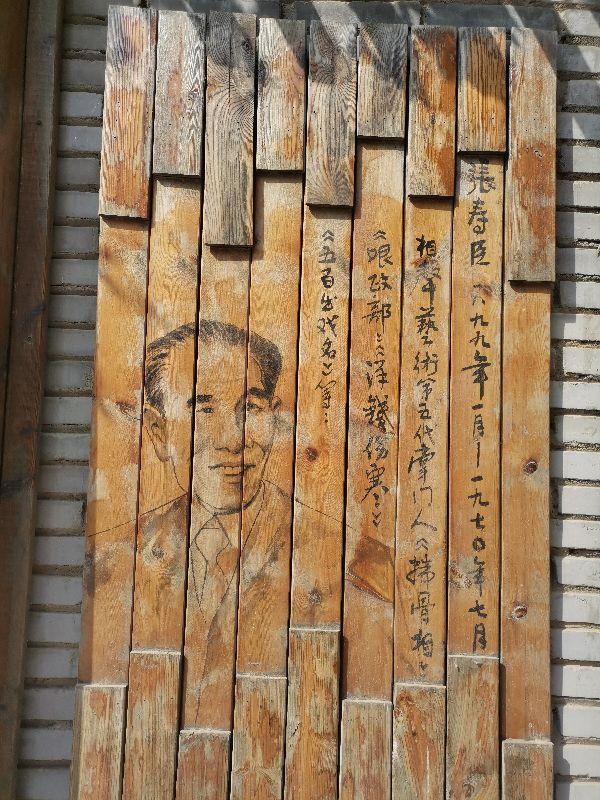 張寿臣 一八九九年一月-一九七〇年七月
相声藝術第五代掌门人《揣骨相》
《哏政部》《洋錢伤寒》
《五百出戏名》等…